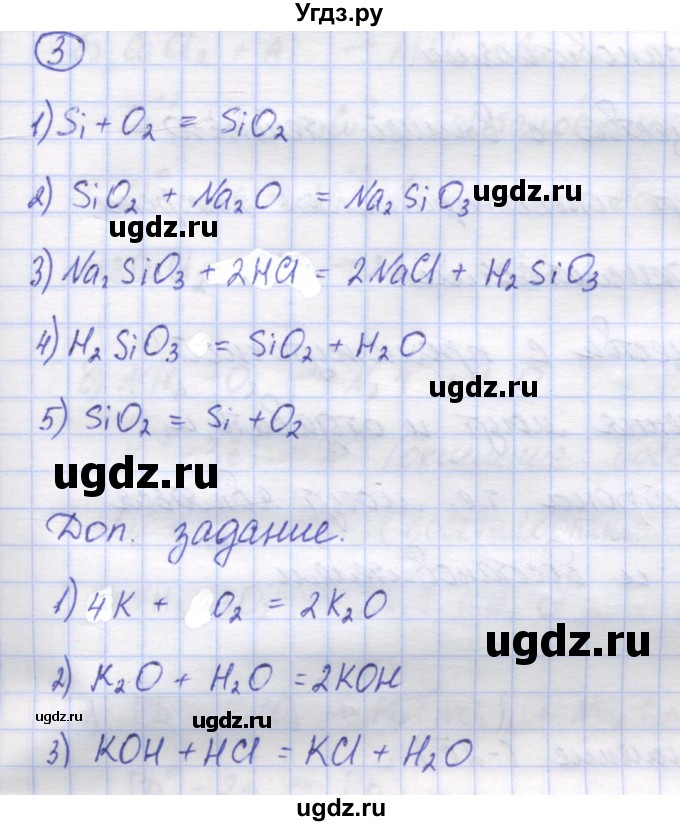 Угдз.ру
3
1) Si + O₂ = SiO₂
2) SiO₂ + Na₂O = Na₂SiO₃ ugdz.ru
ugdz.ru
3) Na₂SiO₃ + 2HCl = 2NaCl + H₂SiO₃
4) H₂SiO₃ = SiO₂ + H₂O
ugdz.ru
5) SiO₂ = Si + O₂
ugdz.ru
Доп. задание.
1) 4K + O₂ = 2K₂O
ugdz.ru
2) K₂O + H₂O = 2KOH
ugdz.ru ugdz.ru
3) KOH + HCl = KCl + H₂O
ugdz.ru